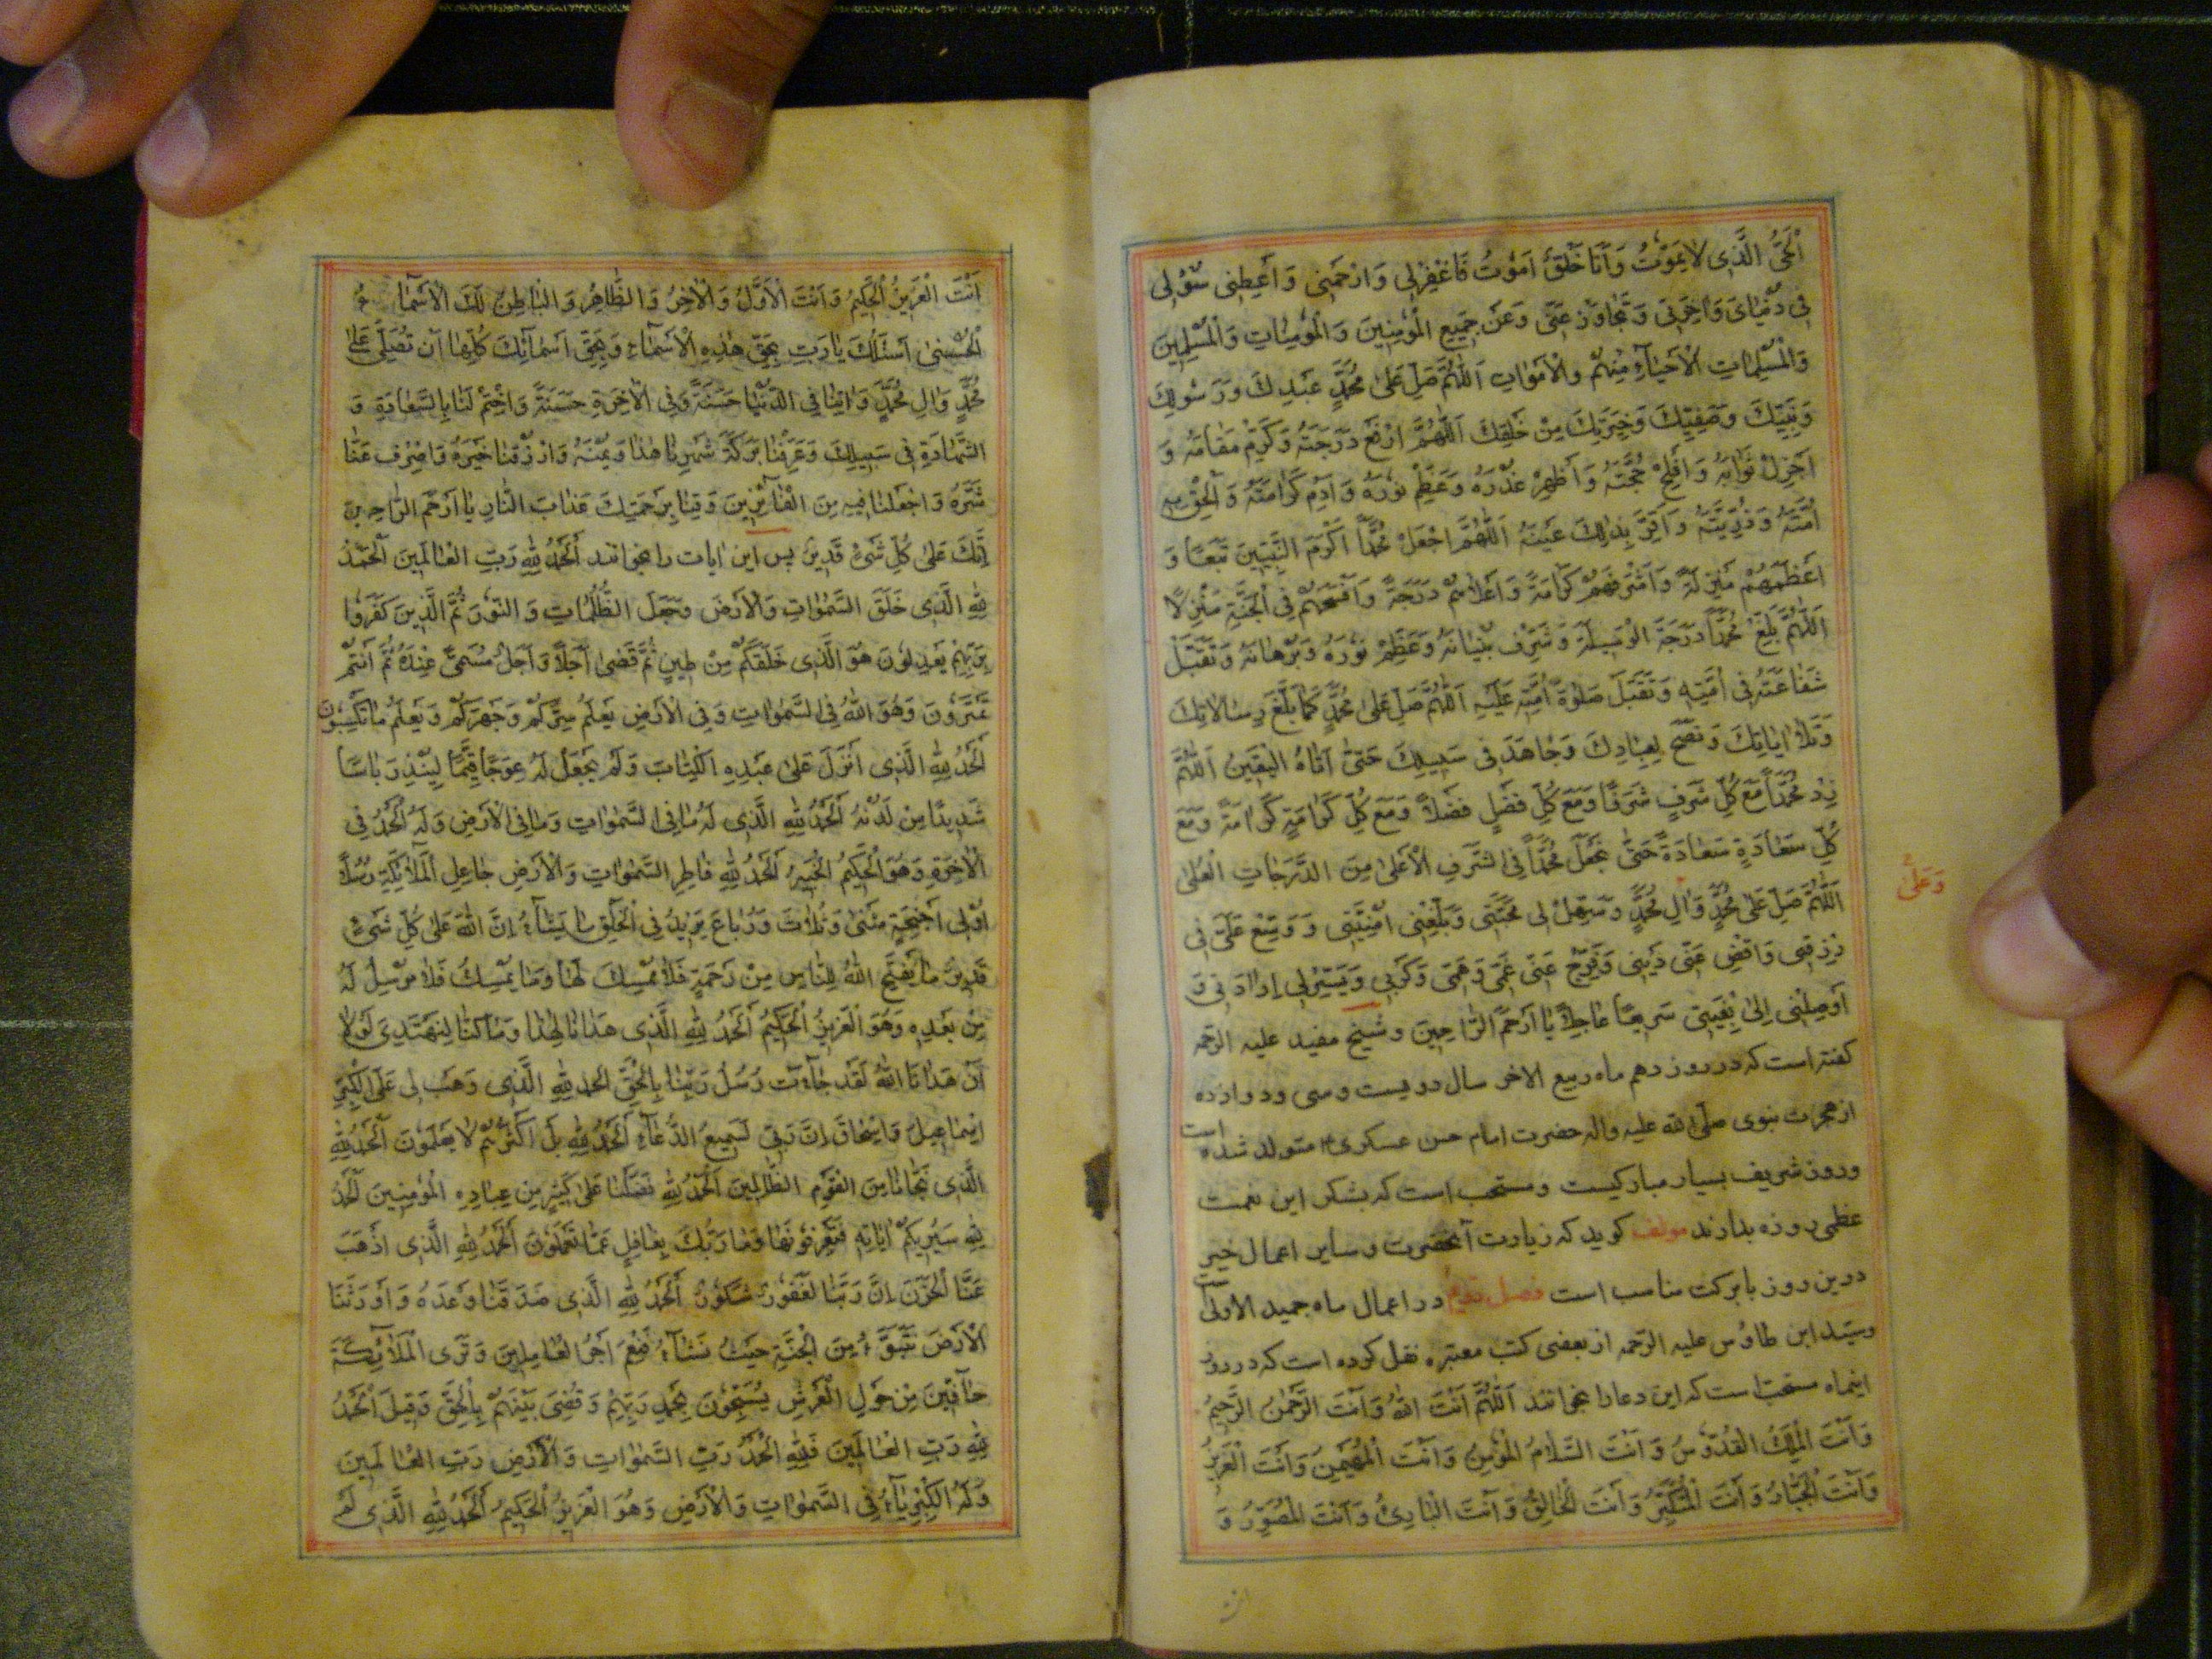 اَلْحَىُّ الَّذى لايَمُوْتُ وَاَنَا خَلْقٌ اَمُوْتُ فَاغْفِرْلى وَارْحَمْنى وَاَعْطِنى سُؤْلى
فى دُنْيَاىَ وَاخِرَتى وَتَجاوَزْ عَنّى وَعَنْ جَميعِ الْمُؤْمِنينَ وَالْمُؤْمِناتِ وَالْمُسْلِمينَ
وَالْمُسْلِماتِ الْاَحْياءِ مِنْهُمْ والْاَمْواتِ اَللّهُمَّ صَلِّ عَلى مُحَمَّدٍ عَبْدِكَ وَرَسُولِكَ
وَنَبِيِّكَ وَصَفِيِّكَ وَخِيَرَتِكَ مِنْ خَلْقِكَ اَللّهُمَّ ارْفَعْ دَرَجَتَهُ وَكَرِّمْ مَقامَهُ وَ
اَجْزِلْ ثَوابَهُ وَاَفْلِحْ حُجَّتَهُ وَاَظْهِرْ عُذْرَهُ وَعَظِّمْ نُورَهُ وَاَدِمْ كَرامَتَهُ وَاَلْحِقْ بِهِ
اُمَّتَهُ وَذُرِّيَّتَهُ وَاَقِرَّ بِذلِكَ عَيْنَهُ اَللّهُمَّ اجْعَلْ مُحَمَّداً اَكْرَمَ النَّبِيّينَ تَبَعاً وَ
اَعْظَمَهُمْ مَنْزِلَةً وَاَشْرَفَهُمْ كَرامَةً وَاَعْلاهُمْ دَرَجَةً وَاَفْسَحَهُمْ فِى الْجَنَّةِ مَنْزِلًا
اَللّهُمَّ بَلِّغْ مُحَمَّداً دَرَجَةَ الْوَسيلَةَ وَشَرِّفْ بُنْيانَهُ وَعَظِّمْ نُورَهُ وَبُرْهانَهُ وَتَقَبَّلْ
شَفاعَتَهُ فى اُمَّتِهِ وَتَقَبَّلْ صَلوةَ اُمَّتِهِ عَلَيْهِ اَللّهُمَّ صَلِّ عَلى مُحَمَّدٍ كَما بَلَّغَ رِسالاتِكَ
وَتَلا اياتِكَ وَنَصَحَ لِعِبادِكَ وَجاهَدَ فى سَبيلِكَ حَتّى اَتاهُ الْيَقينُ اَللّهُمَّ
زِدْ مُحَمَّداً مَعَ كُلِّ شَرَفٍ شَرَفاً وَمَعَ كُلِّ فَضْلٍ فَضْلاً وَمَعَ كُلِّ كَرامَةٍ كَرامَةً وَمَعَ
كُلِّ سَعادَةٍ سَعادَةً حَتّى تَجْعَلَ مُحَمَّداً فِى الشَّرَفِ الْاَعْلى مِنَ الدَّرَجاتِ الْعُلى
اَللّهُمَّ صَلِّ عَلى مُحَمَّدٍ وَالِ مُحَمَّدٍ وَسَهِّلْ لى مَحَبَّتى وَبَلِّغْنى اُمْنِيَّتى وَوَسِّعْ عَلَىَّ فى
وَعَلى
رِزْقى وَاقْضِ عَنّى دَيْنى وَفَرِّجْ عَنّى غَمّى وَهَمّى وَكَرْبى وَيَسِّرْلى اِرادَتى وَ
اَوْصِلْنى اِلى بُغْيَتى سَريعاً عاجِلاً يا اَرْحَمَ الرّاحِمينَ وشيخ مفيد عليه الرحمه
كفته است كه در روز دهم ماه ربيع الاخر سال دويست وسى ودوازده
از هجرت نبوى صلّى الله عليه واله حضرت امام حسن عسكرى ع متولد شده است
وروز شريف بسيار مباركيست ومستحب است كه بشكر اين نعمت
عظمى روزه بدارند مولف كويد كه زيارت آنحضرت وساير اعمال خير
درين روز بابركت مناسب است فصل در اعمال ماه جميد الاولى است
وسيّد ابن طاوُس عليه الرّحمه از بعضى كتب معتبره نقل كرده است كه در روز
اينماه مستحبّ است كه اين دعا را بخوانند اَللّهُمَّ اَنْتَ اللهُ وَاَنْتَ الرَّحْمنُ الرَّحيمُ
وَاَنْتَ الْمَلِكُ الْقُدُّوسُ وَاَنْتَ السَّلامُ الْمُؤْمِنُ وَاَنْتَ الْمُهَيْمِنُ وَاَنْتَ الْعَزيزُ
وَاَنْتَ الْجَبّارُ وَاَنْتَ الْمُتَكَبِّرُ وَاَنْتَ الْخالِقُ وَاَنْتَ الْبارِئُ وَاَنْتَ الْمُصَوِّرُ وَ
اَنْتَ الْعَزيزُ الْحَكيمُ وَاَنْتَ الْاَوَّلُ وَالْاخِرُ وَالظّاهِرُ وَالْباطِنُ لَكَ الْاَسْماءُ
الْحُسْنى اَسْئَلُكَ يا رَبِّ بِحَقِّ هذِهِ الْاَسْماءِ وَبِحَقِّ اَسْمائِكَ كُلِّها اَنْ تُصَلِّىَ عَلى
مُحَمَّدٍ وَالِ مُحَمَّدٍ وَاتِنا فِى الدُّنْيا حَسَنَةً وَفِى الْاخِرَةِ حَسَنَةً وَاخْتِمْ لَنا بِالسَّعادَةِ وَ
الشَّهادَةِ فى سَبيلِكَ وَعَرِّفْنا بَرَكَةَ شَهْرِنا هذا وَيُمْنَهُ وَارْزُقْنا خَيْرَهُ وَاصْرِفْ عَنّا
شَرَّهُ وَاجْعَلْنا فيهِ مِنَ الْفائِزينَ وَقِنا بِرَحْمَتِكَ عَذابَ النّارِ يا اَرْحَمَ الرّاحِمينَ
اِنَّكَ عَلى كُلِّ شَىْءٍ قَديرٌ پس اين ايات را بخوانند اَلْحَمْدُ لِلّهِ رَبِّ الْعالَمينَ اَلْحَمْدُ
لِلّهِ الَّذى خَلَقَ السَّمواتِ وَالْاَرْضَ وَجَعَلَ الظُّلُماتِ وَالنُّورَ ثُمَّ الَّذينَ كَفَرُوا
بِرَبِّهِمْ يَعْدِلُونَ هُوَ الَّذى خَلَقَكُمْ مِنْ طينٍ ثُمَّ قَضى اَجَلاً وَاَجَلٌ مُسَمّىً عِنْدَهُ ثُمَّ اَنْتُمْ
تَمْتَرُونَ وَهُوَ اللهُ فِى السَّمواتِ وَفِى الْاَرْضِ يَعْلَمُ سِرَّكُمْ وَجَهْرَكُمْ وَيَعْلَمُ ما تَكْسِبُونَ
اَلْحَمْدُ لِلّهِ الَّذى اَنْزَلَ عَلى عَبْدِهِ الْكِتابَ وَلَمْ يَجْعَلْ لَهُ عِوَجاً قَيِّماً لِيُنْذِرَ بَاْساً
شَديداً مِنْ لَدُنْهُ اَلْحَمْدُ لِلّهِ الَّذى لَهُ ما فِى السَّمواتِ وَما فِى الْاَرْضِ وَلَهُ الْحَمْدُ فِى
الْاخِرَةِ وَهُوَ الْحَكيمُ الْخَبيرُ اَلْحَمْدُ لِلّهِ فاطِرِ السَّمواتِ وَالْاَرْضِ جاعِلِ الْمَلائِكَةِ رُسُلاً
اُولى اَجْنِحَةٍ مَثْنى وَثُلاثَ وَرُباعَ يَزيدُ فِى الْخَلْقِ ما يَشاءُ اِنَّ اللهَ عَلى كُلِّ شَىْءٍ
قَديرٌ ما يَفْتَحِ اللهُ لِلنّاسِ مِنْ رَحْمَةٍ فَلا مُمْسِكَ لَها وَما يُمْسِكْ فَلا مُرْسِلَ لَهُ
مِنْ بَعْدِهِ وَهُوَ الْعَزيزُ الْحَكيمُ اَلْحَمْدُ لِلّهِ الَّذى هَدانا لِهذا وَما كُنّا لِنَهْتَدِىَ لَوْلا
اَنْ هَدانَا اللهُ لَقَدْ جاءَتْ رُسُلُ رَبِّنا بِالْحَقِّ الحمد لِلّهِ الَّذى وَهَبَ لى عَلَى الْكِبَرِ
اِسْماعيلَ وَاِسْحاقَ اِنَّ رَبّى لَسَميعُ الدُّعاءِ اَلْحَمْدُ لِلّهِ بَلْ اَكْثَرُهُمْ لا يَعْلَمُونَ اَلْحَمْدُ لِلّهِ
الَّذى نَجّانا مِنَ الْقَوْمِ الظّالِمينَ اَلْحَمْدُ لِلّهِ فَضَّلَنا عَلى كَثيرٍ مِنْ عِبادِهِ الْمُؤْمِنينَ اَلْحَمْدُ
لِلّهِ سَيُريكُمْ اياتِهِ فَتَعْرِفُونَها وَما رَبُّكَ بِغافِلٍ عَمّا تَعْمَلُونَ اَلْحَمْدُ لِلّهِ الَّذى اَذْهَبَ
عَنَّا الْحُزْنَ اِنَّ رَبَّنا لَغَفُورٌ شَكُورٌ اَلْحَمْدُ لِلّهِ الَّذى صَدَقَنا وَعْدَهُ وَاَوْرَثَنَا
الْاَرْضَ نَتَبَوَّءُ مِنَ الْجَنَّةِ حَيْثُ نَشاءُ فَنِعْمَ اَجْرُ الْعامِلينَ وَتَرَى الْمَلائِكَةَ
حافّينَ مِنْ حَوْلِ الْعَرْشِ يُسَبِّحُونَ بِحَمْدِ رَبِّهِمْ وَقُضِىَ بَيْنَهُمْ بِالْحَقِّ وَقيلَ الْحَمْدُ
لِلّهِ رَبِّ الْعالَمينَ فَلِلّهِ الْحَمْدُ رَبِّ السَّمواتِ وَالْاَرْضِ رَبِّ الْعالَمينَ
وَلَهُ الْكِبْرِياءُ فِى السَّمواتِ وَالْاَرْضِ وَهُوَ الْعَزيزُ الْحَكيمُ اَلْحَمْدُ لِلّهِ الَّذى لَمْ